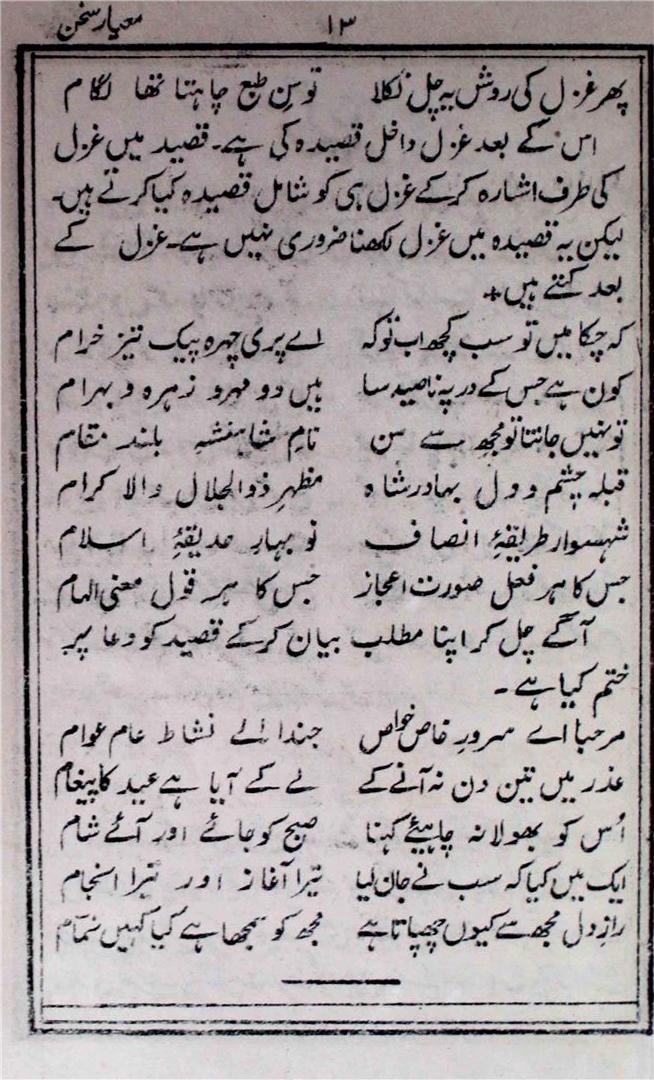 معیار سخن ۱۳
پھر غزل کی روش پہ چل نکلا توسنِ طبع چاہتا تھا لگام
اس کے بعد غزل داخل قصیدہ کی ہے۔ قصید میں غزل
کی طرف اشارہ کرکے غزل ہی کو شامل قصیدہ کیا کرتے ہیں۔
لیکن یہ قصیدہ میں غزل لکھنا ضروری نہیں ہے۔ غزل کے
بعد کہتے ہیں+
کہ چکا میں تو سب کچھ اب تو کہ اے پری چہرہ پیک تیز خرام
کون ہے جس کے در پہ ناصیہ سا ہیں مہ و مہر و زہرہ و بہرام
تو نہیں جانتا تو مجھ سے سن نامِ شاہنشہِ بلند مقام
قبلہ چشم و دل بہادر شاہ مظہرِ ذوالجلال والاکرام
شہسوار طریقۂ انصاف نو بہارِ حدیقۂ اسلام
جس کا ہر فعل صورت اعجاز جس کا ہر قول معنی الہام
آگے چل کر اپنا مطلب بیان کرکے قصید کو دعا پر
ختم کیا ہے۔
مرحبا اے سرورِ خاص خواص حبذا اے نشاط عام عوام
عذر میں تین دن نہ آنے کے لے کے آیا ہے عید کا پیغام
اُس کو بھولا نہ چاہیئے کہنا صبح کو جائے اور آئے شام
ایک میں کیا کہ سب نے جان لیا تیرا آغاز اور تیرا انجام
راز دل مجھ سے کیوں چھپاتا ہے مجھ کو سمجھا ہے کیا کہیں نمّام